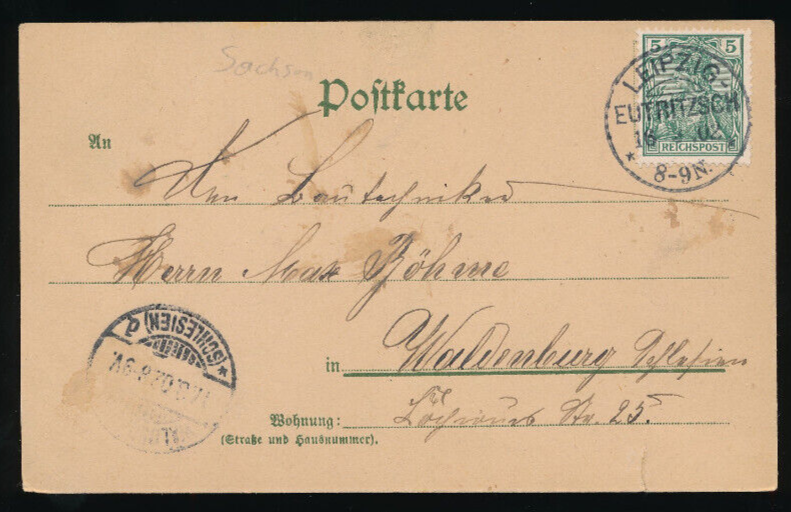 Sachsen
Postkarte
5 5
REICHSPOST
LEIPZIG-
EUTRITZSCH
16 02
8-9N.
An
Bautechniker
Herrn Max Böhme
in Waldenburg Schlesien
Wohnung: Str. 25.
(Straße und Hausnummer).
(SCHLESIEN) d